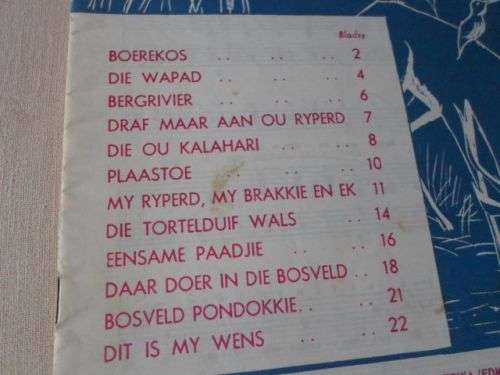 Bladsy
BOEREKOS .. .. .. 2
DIE WAPAD .. .. .. 4
BERGRIVIER .. .. .. 6
DRAF MAAR AAN OU RYPERD 7
DIE OU KALAHARI .. .. 8
PLAASTOE .. .. .. 10
MY RYPERD, MY BRAKKIE EN EK 11
DIE TORTELDUIF WALS .. 14
EENSAME PAADJIE .. .. 16
DAAR DOER IN DIE BOSVELD .. 18
BOSVELD PONDOKKIE.. .. 21
DIT IS MY WENS .. .. 22